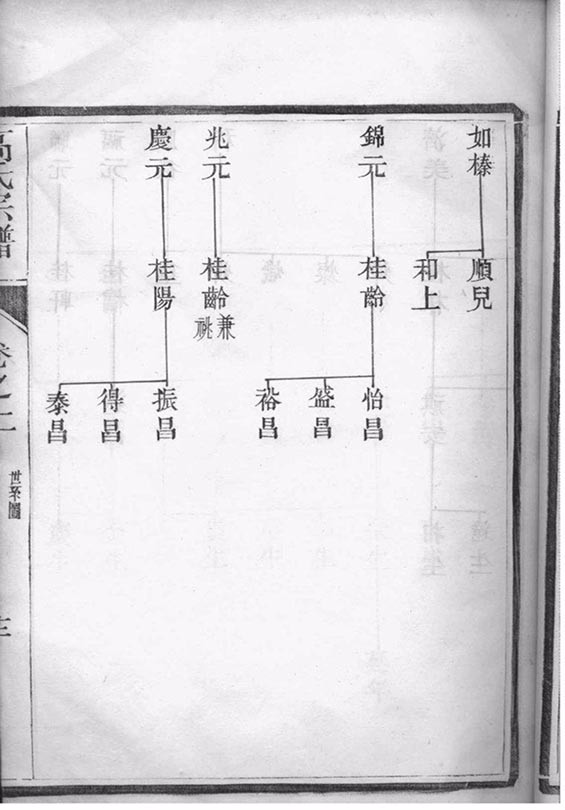 如榛
順兒
和上
錦元
桂齡
怡昌
盛昌
裕昌
兆元
桂齡兼祧
慶元
桂陽
振昌
得昌
泰昌
高氏宗譜
卷之二
世系圖